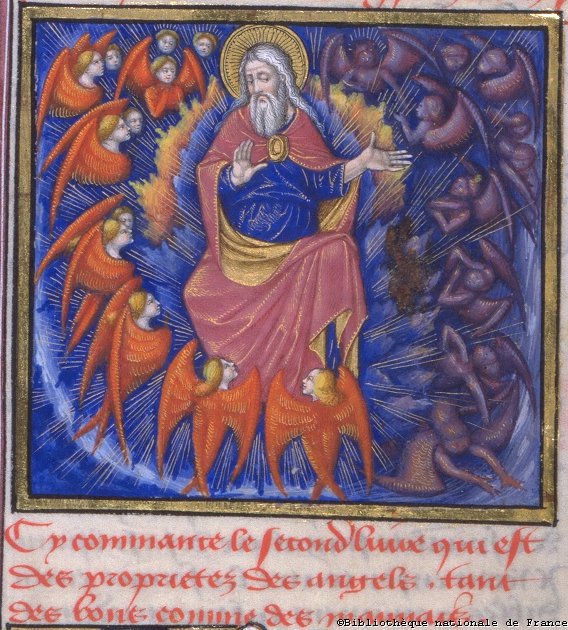 Cy commance le second livre qui est
des proprietez des angels . tant
des bons comme des mauvais
©Bibliothèque nationale de France